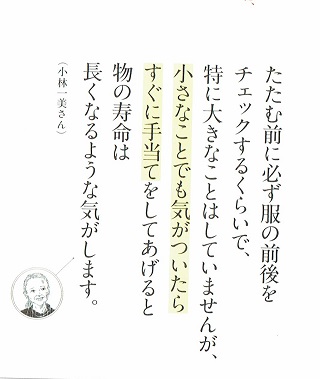 たたむ前に必ず服の前後を
チェックするくらいで、
特に大きなことはしていませんが、
小さなことでも気がついたら
すぐに手当てをしてあげると
物の寿命は
長くなるような気がします。
（小林一美さん）